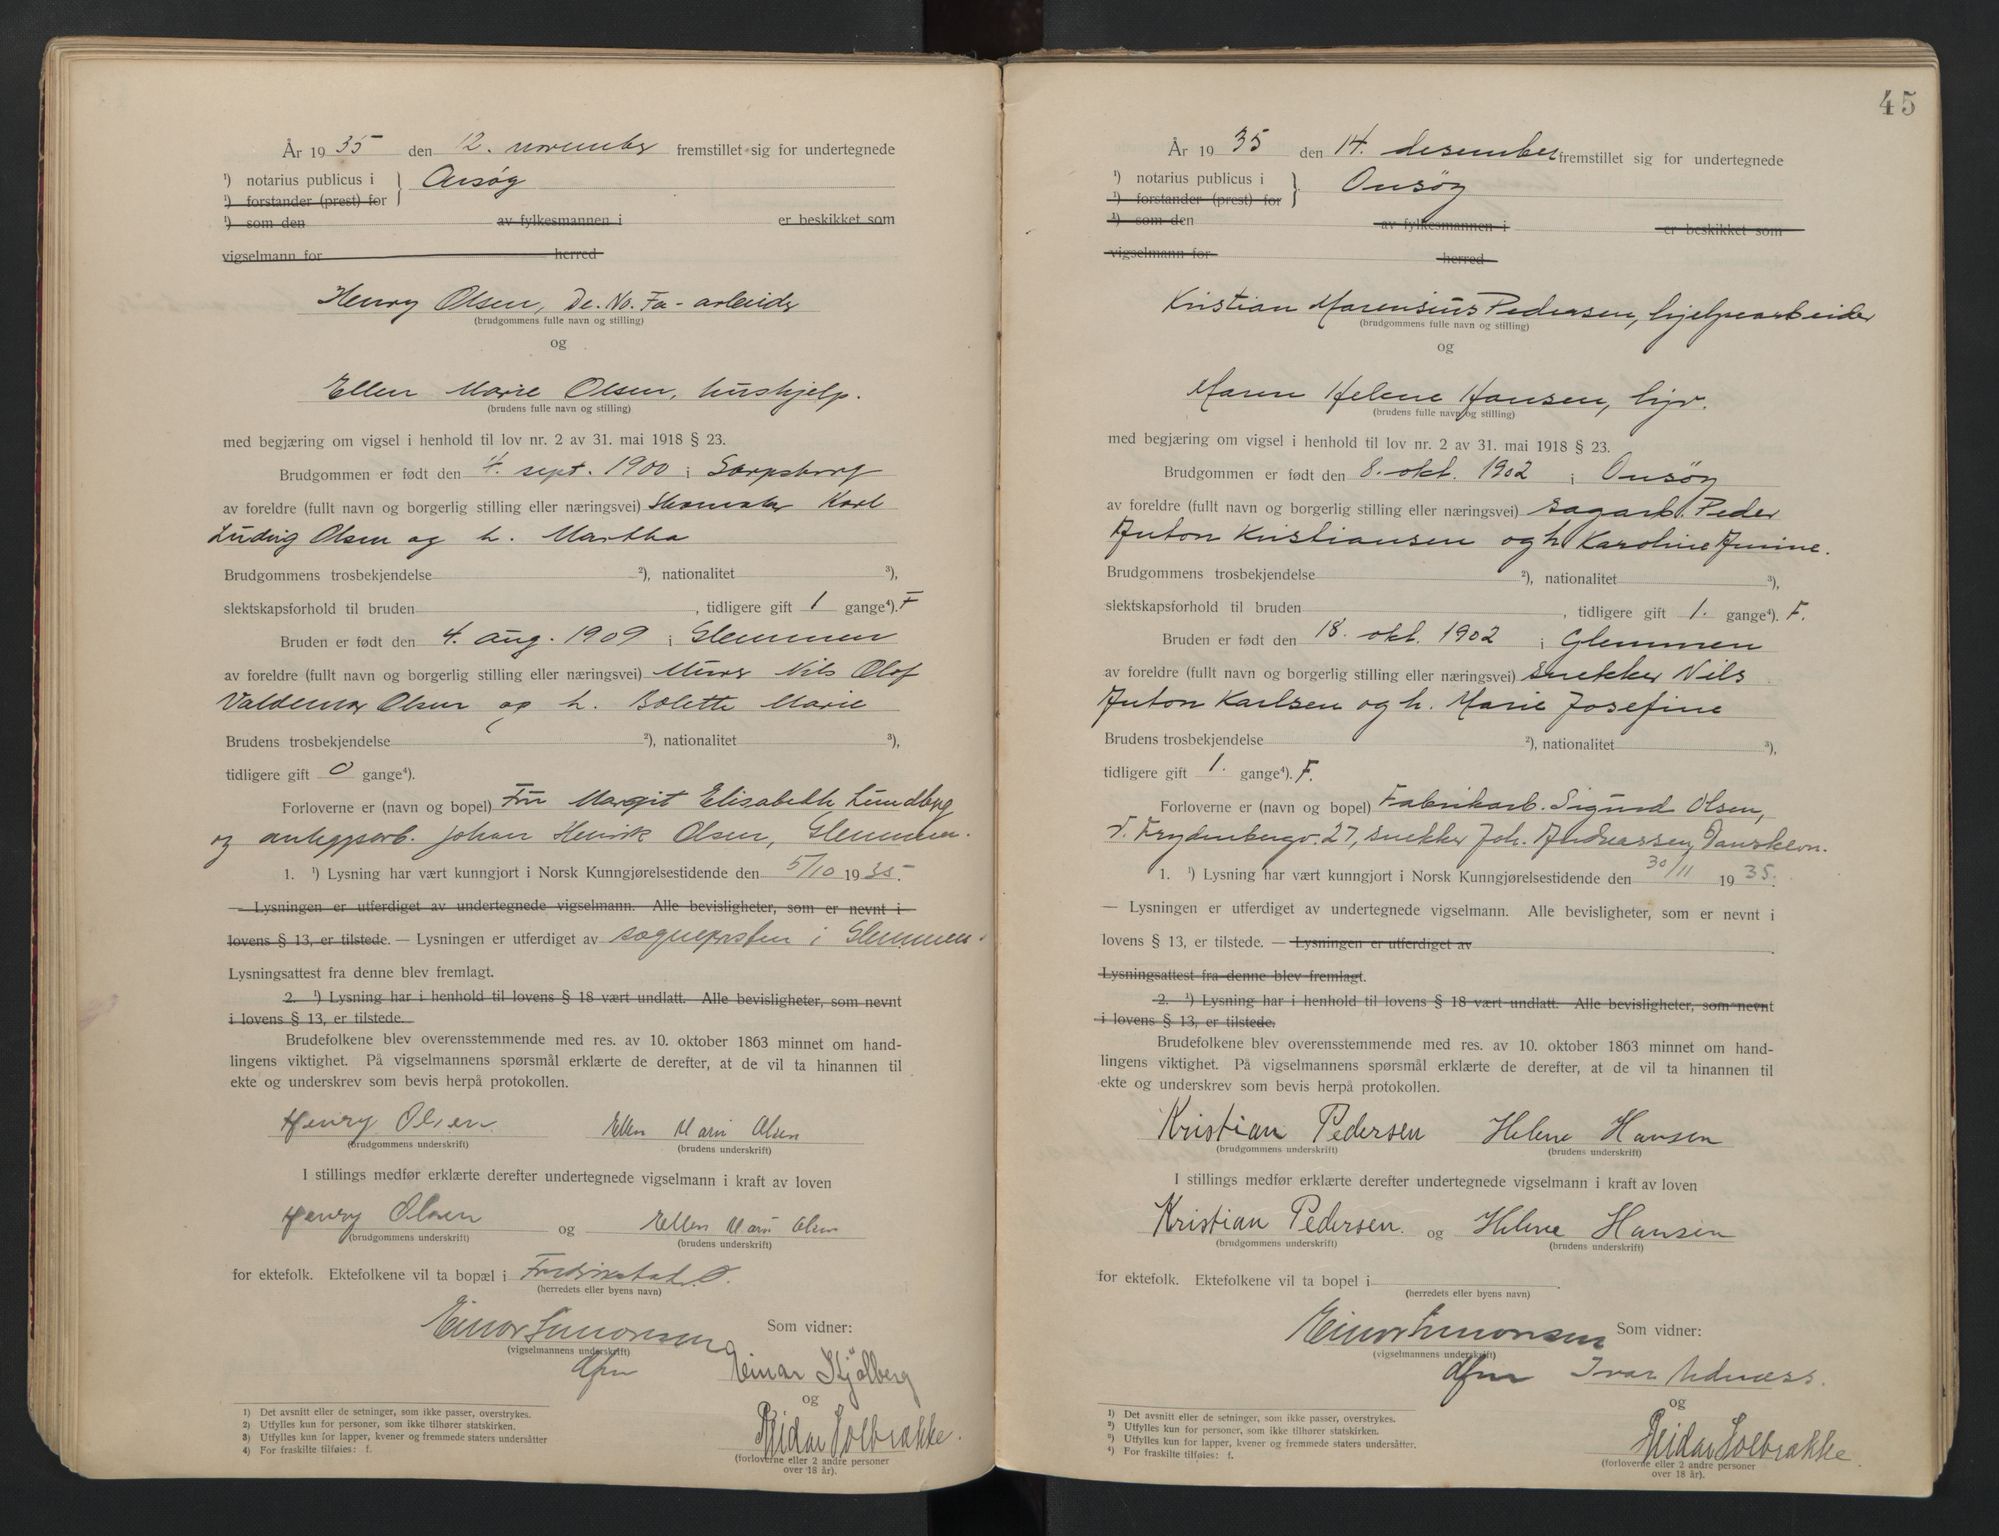 År 1935 den 12. november fremstillet sig for undertegnede
¹) notarius publicus i } Onsøy
¹) forstander (prest) for
¹) som den av fylkesmannen i er beskikket som
vigselmann for herred
Henry Olsen, De. No. Fa - arbeider
(brudgommens fulle navn og stilling)
og
Ellen Marie Olsen, hushjelp.
(brudens fulle navn og stilling)
med begjæring om vigsel i henhold til lov nr. 2 av 31. mai 1918 § 23.
Brudgommen er født den 4. sept. 1900 i Sarpsborg
av foreldre (fullt navn og borgerlig stilling eller næringsvei) Skomaker Karl
Ludvig Olsen og h. Martha
Brudgommens trosbekjendelse ²), nationalitet ³),
slektskapsforhold til bruden , tidligere gift 1 gange⁴). F
Bruden er født den 4. aug. 1909 i Glemmen
av foreldre (fullt navn og borgerlig stilling eller næringsvei) Murer Nils Olof
Valdemar Olsen og h. Bolette Marie
Brudens trosbekjendelse ²), nationalitet ³),
tidligere gift 0 gange⁴).
Forloverne er (navn og bopel) Fru Margit Elisabeth Lundberg
og anleggsarb. Johan Henrik Olsen, Glemmen.
1. ¹) Lysning har vært kunngjort i Norsk Kunngjørelsestidende den 5/10 1935.
— Lysningen er utferdiget av undertegnede vigselmann. Alle bevisligheter, som er nevnt i
lovens § 13, er tilstede. — Lysningen er utferdiget av sogneprsten i Glemmen.
Lysningsattest fra denne blev fremlagt.
2. ¹) Lysning har i henhold til lovens § 18 vært undlatt. Alle bevisligheter, som nevnt
i lovens § 13, er tilstede.
Brudefolkene blev overensstemmende med res. av 10. oktober 1863 minnet om hand-
lingens viktighet. På vigselmannens spørsmål erklærte de derefter, at de vil ta hinannen til
ekte og underskrev som bevis herpå protokollen.
Henry Olsen. Ellen Marie Olsen
(brudgommens underskrift) (brudens underskrift)
I stillings medfør erklærte derefter undertegnede vigselmann i kraft av loven
Henry Olsen og Ellen Marie Olsen
(brudgommens underskrift) (brudens underskrift)
for ektefolk. Ektefolkene vil ta bopæl i Fredrikstad. O.
(herredets eller byens navn)
Einar Simonsen Som vidner:
(vigselmannens underskrift)
dfm Einar Kjølberg
og
Reidar Solbrække.
(forloverne eller 2 andre personer
over 18 år).
1) Det avsnitt eller de setninger, som ikke passer, overstrykes.
2) Utfylles kun for personer, som ikke tilhører statskirken.
3) Utfylles kun for lapper, kvener og fremmede staters undersåtter
4) For fraskilte tilføies: f.
45
År 1935 den 14. desember fremstillet sig for undertegnede
¹) notarius publicus i } Onsøy
¹) forstander (prest) for
¹) som den av fylkesmannen i er beskikket som
vigselmann for herred
Kristian Marensius Pedersen, hjelpearbeider
(brudgommens fulle navn og stilling)
og
Maren Helene Hansen, hjv.
(brudens fulle navn og stilling)
med begjæring om vigsel i henhold til lov nr. 2 av 31. mai 1918 § 23.
Brudgommen er født den 8. okt. 1902 i Onsøy
av foreldre (fullt navn og borgerlig stilling eller næringsvei) sagarb. Peder
Anton Kristiansen og h. Karoline Amine.
Brudgommens trosbekjendelse ²), nationalitet ³),
slektskapsforhold til bruden , tidligere gift 1. gange⁴). F.
Bruden er født den 18. okt. 1902 i Glemmen
av foreldre (fullt navn og borgerlig stilling eller næringsvei) snekker Nils
Anton Karlsen og h. Marie Josefine
Brudens trosbekjendelse ²), nationalitet ³),
tidligere gift 1. gange⁴). F.
Forloverne er (navn og bopel) Fabrikarb. Sigurd Olsen,
T. Frydenbergv. 27, snekker Joh. Andreassen, Danskevn.
1. ¹) Lysning har vært kunngjort i Norsk Kunngjørelsestidende den 30/11 1935.
— Lysningen er utferdiget av undertegnede vigselmann. Alle bevisligheter, som er nevnt i
lovens § 13, er tilstede. — Lysningen er utferdiget av
Lysningsattest fra denne blev fremlagt.
2. ¹) Lysning har i henhold til lovens § 18 vært undlatt. Alle bevisligheter, som nevnt
i lovens § 13, er tilstede.
Brudefolkene blev overensstemmende med res. av 10. oktober 1863 minnet om hand-
lingens viktighet. På vigselmannens spørsmål erklærte de derefter, at de vil ta hinannen til
ekte og underskrev som bevis herpå protokollen.
Kristian Pedersen Helene Hansen
(brudgommens underskrift) (brudens underskrift)
I stillings medfør erklærte derefter undertegnede vigselmann i kraft av loven
Kristian Pedersen. og Helene Hansen
(brudgommens underskrift) (brudens underskrift)
for ektefolk. Ektefolkene vil ta bopel i
(herredets eller byens navn)
Einar Simonsen Som vidner:
(vigselmannens underskrift)
dfm Ivar Udnæss.
og
Reidar Solbrække.
(forloverne eller 2 andre personer
over 18 år).
1) Det avsnitt eller de setninger, som ikke passer, overstrykes.
2) Utfylles kun for personer, som ikke tilhører statskirken.
3) Utfylles kun for lapper, kvener og fremmede staters undersåtter.
4) For fraskilte tilføies: f.